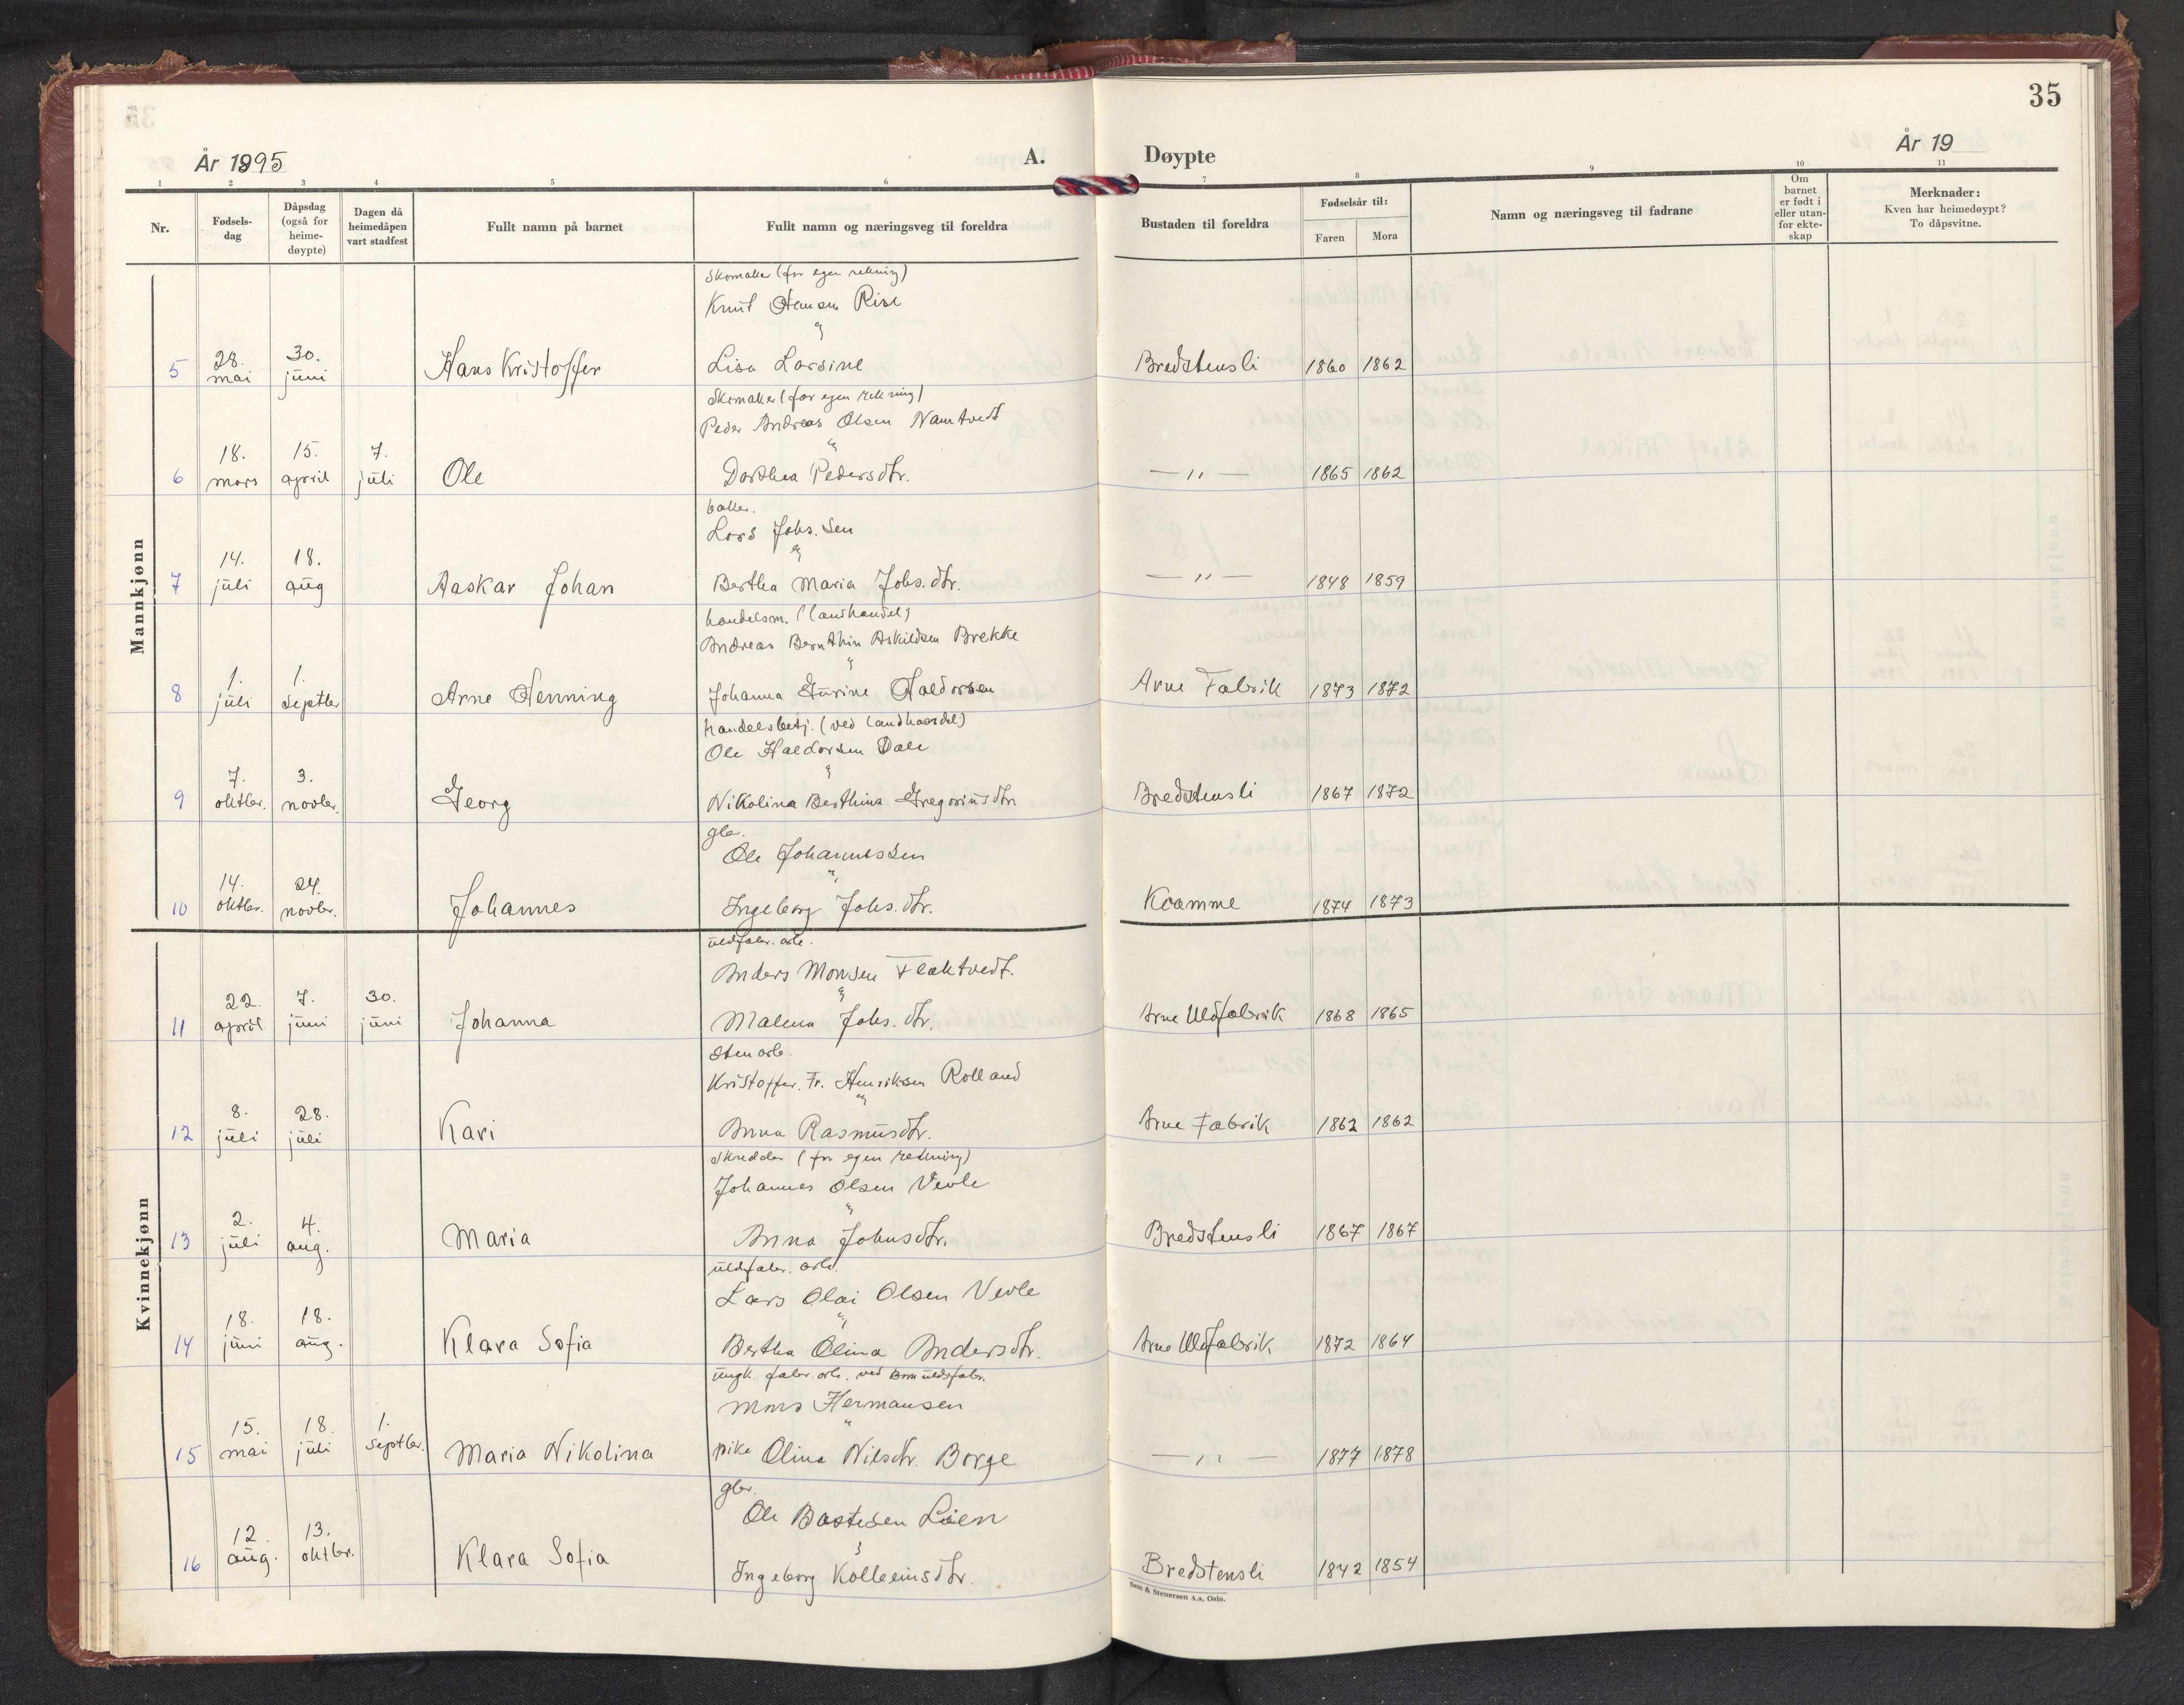 35
År 1895
A.
Døypte
År 19
1 2 3 4 5 6 7 8 9 10 11
Nr.
Fødsels-
dag
Dåpsdag
(også for
heime-
døypte)
Dagen då
heimedåpen
vart stadfest
Fullt namn på barnet
Fullt namn og næringsveg til foreldra
Bustaden til foreldra
Fødselsår til:
Faren Mora
Namn og næringsveg til fadrane
Om
barnet
er født i
eller utan-
for ekte-
skap
Merknader:
Kven har heimedøypt?
To dåpsvitne.
Mannkjønn
Skomaker (for egen rekning)
Knut Hansen Rise
&
5 28. mai 30. juni Hans Kristoffer Lisa Larsine Bredstensli 1860 1862
Skomaker (for egen rekning)
Peder Andreas Olsen Namtvedt
&
6 18. mars 15. april 7. juli Ole Dorthea Pedersdtr. — " — 1865 1862
baker.
Lars Johs. sen
&
7 14. juli 18. aug Aaskar Johan Bertha Maria Johs. dtr. — " — 1848 1859
handelsm. (landhandel)
Andreas Bernthin Askildsen Brekke
&
8 1. juli 1. septbr Arne Henning Johanna Gurine Haldorsen Arne Fabrik 1873 1872
handelsbetj. (ved landhandel)
Ole Haldorsen Dale
&
9 7. oktbr. 3. novbr. Georg Nikolina Berthina Gregoriusdtr Bredstensli 1867 1872
gbr.
Ole Johannessen
&
10 14. oktbr. 24. novbr. Johannes Ingeborg Johs. dtr. Kvamme 1874 1873
Kvinnekjønn
uldfabr. arb.
Anders Monsen Flaktvedt.
&
11 22. april 7. juni 30. juni Johanna Malena Johs. dtr. Arne Uldfabrik 1868 1865
Sten arb.
Kristoffer. Fr. Henriksen Rolland
&
12 8. juli 28. juli Kari Anna Rasmusdtr. Arne Fabrik 1862 1862
Skredder (for egen rekning)
Johannes Olsen Vevle
&
13 2. juli 4. aug. Maria Anna Johnsdtr. Bredstensli 1867 1867
uldfabr. arb.
Lars Olai Olsen Vevle
&
14 18. juni 18. aug. Klara Sofia Bertha Olina Andersdtr. Arne Uldfabrik 1872 1864
ungk. fabr. arb. ved Bomuldsfabr.
Mons Hermansen
&
15 15. mai 18. juli 1. septbr. Maria Nikolina pike Olina Nilsdtr. Borge — " — 1877 1878
gbr.
Ole Bastesen Lien
&
16 12. aug. 13. oktbr. Klara Sofia Ingeborg Kolbeinsdtr. Bredstensli 1842 1854
Sem & Stenersen A.s, Oslo.